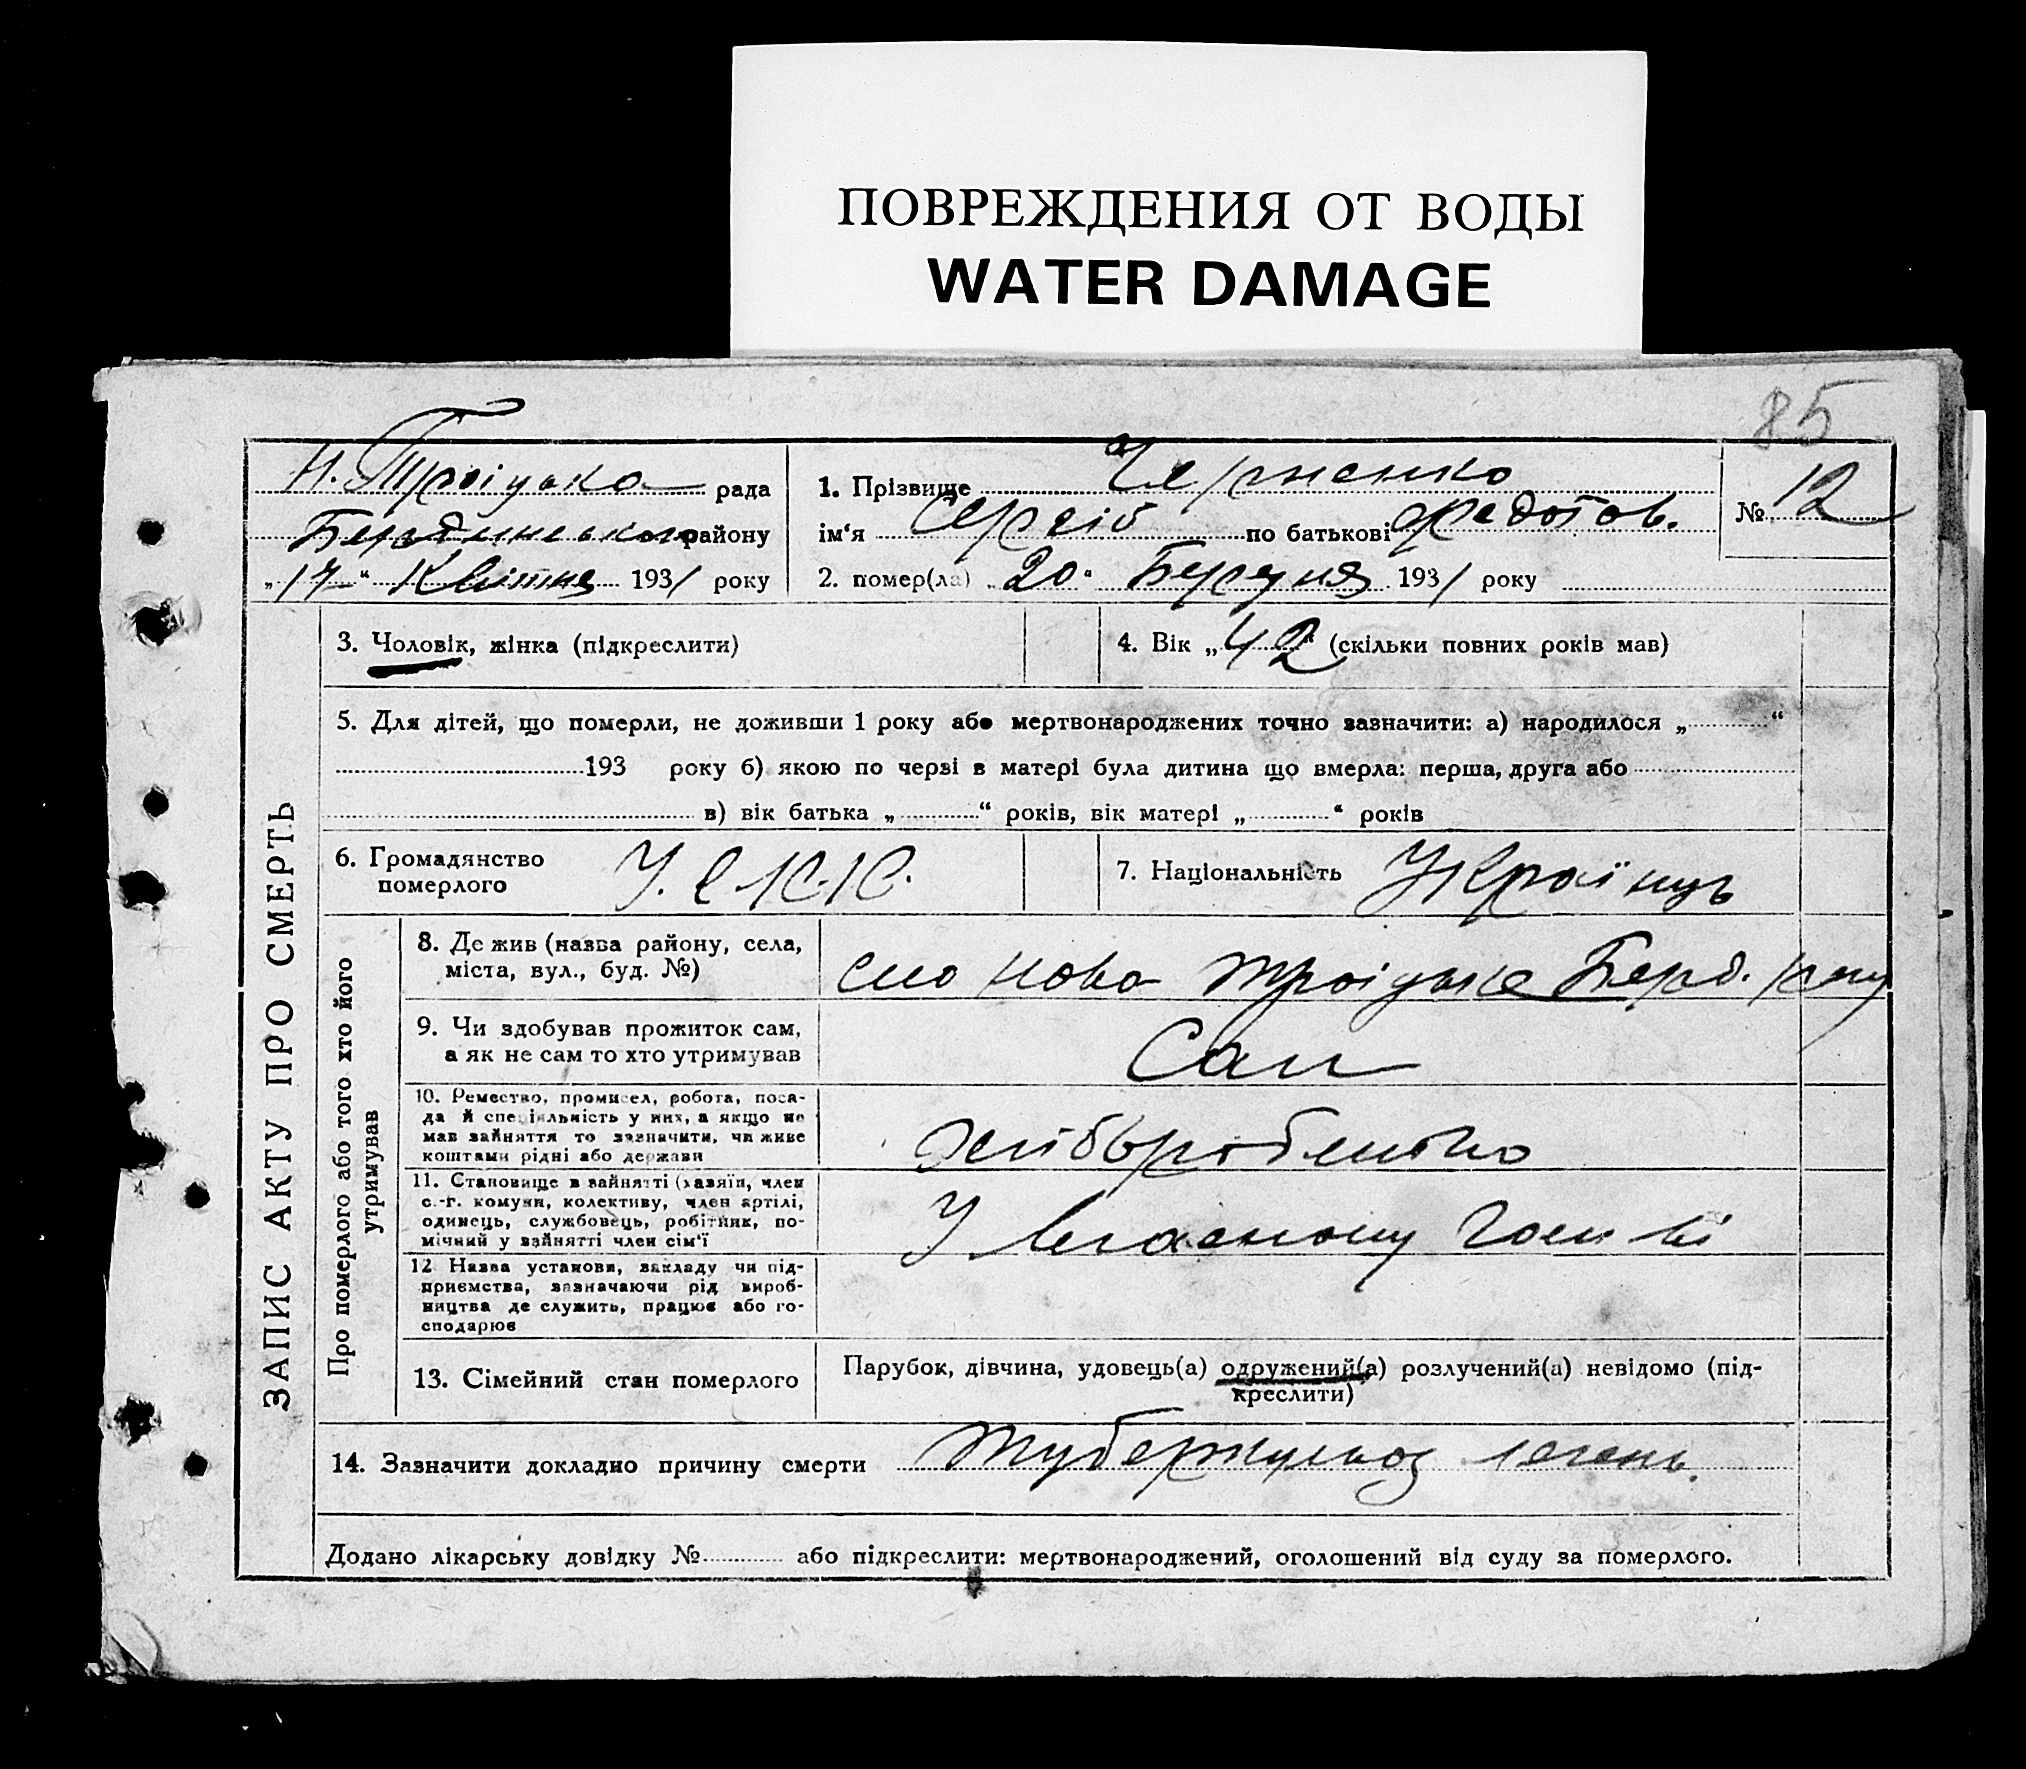 ПОВРЕЖДЕНИЯ ОТ ВОДЫ
WATER DAMAGE
85
Н. Троіцька рада
Бердянського району
„17“ Квітня 1931 року
1. Прізвище Черненко
ім‘я Сергій по батькові Федотов.
№ 12
2. помер(ла) „20“ Березня 1931 року
ЗАПИС АКТУ ПРО СМЕРТЬ
3. Чоловік, жінка (підкреслити)
4. Вік „42“ (скільки повних років мав)
5. Для дітей, що померли, не доживши 1 року або мертвонароджених точно зазначити: а) народилося „ “
193 року б) якою по черзі в матері була дитина що вмерла: перша, друга або
в) вік батька „ “ років, вік матері „ “ років
6. Громадянство
померлого
У.С.Р.Р.
7. Національність Українць
Про померлого або того хто його
утримував
8. Де жив (назва району, села,
міста, вул., буд. №)
село Ново Троіцьке Берд. рну
9. Чи здобував прожиток сам,
а як не сам то хто утримував
Сам
10. Ремество, промисел, робота, поса-
да й спеціяльність у них, а якщо не
мав зайняття то зазначити, чи живе
коштами рідні або держави
Хліборобство
11. Становище в зайнятті (хазяїн, член
с.-г. комуни, колективу, член артілі,
одинець, службовець, робітник, по-
мічний у зайнятті член сім‘ї
У власному
12 Назва установи, закладу чи під-
приємства, зазначаючи рід вироб-
ництва де служить, працює або го-
сподарює
13. Сімейний стан померлого
Парубок, дівчина, удовець(а) одружений(а) розлучений(а) невідомо (під-
креслити)
14. Зазначити докладно причину смерти Туберкульоз легень.
Додано лікарську довідку № або підкреслити: мертвонароджений, оголошений від суду за померлого.